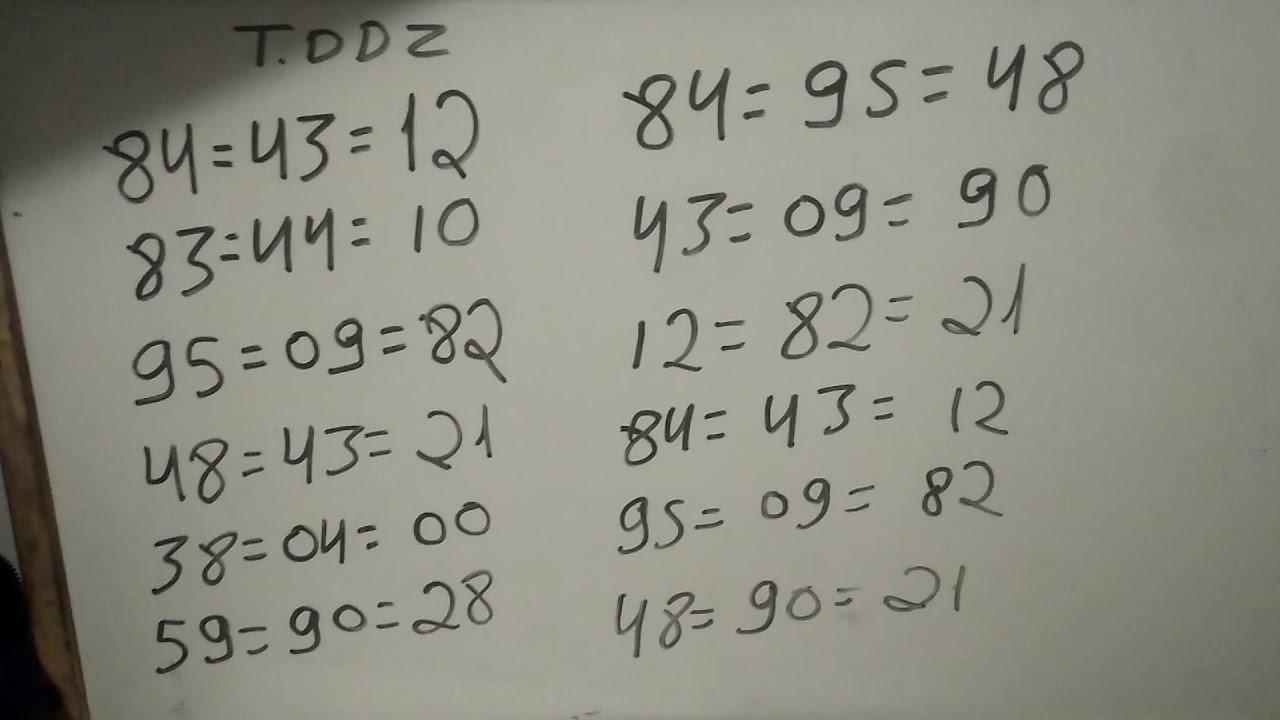 T.DDZ
84=43=12
83=44=10
95=09=82
48=43=21
38=04=00
59=90=28
84=95=48
43=09=90
12=82=21
84=43=12
95=09=82
48=90=21